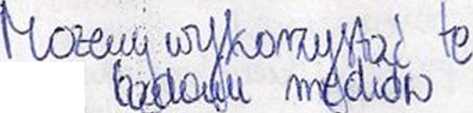 Możemy wykorzystać te
mediów